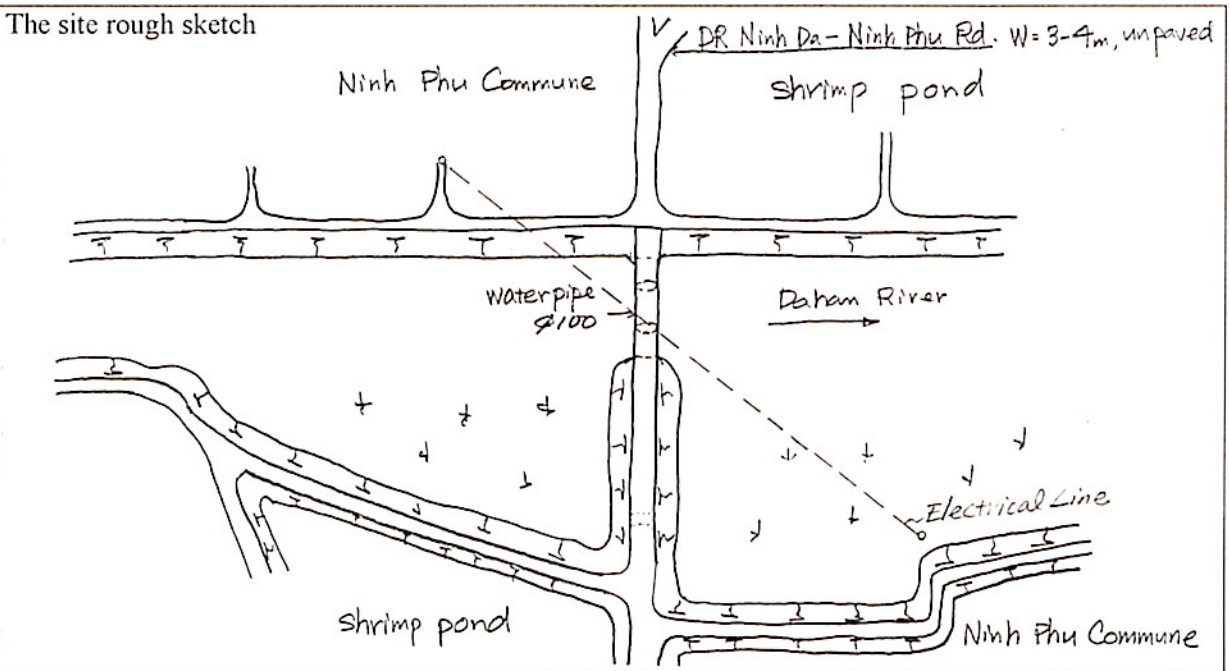 The site rough sketch
DR Ninh Da - Ninh Phu Rd. W = 3-4m, unpaved
Ninh Phu Commune
Shrimp pond
Waterpipe
φ100
Dahan River
Electrical Line
Shrimp pond
Ninh Phu Commune